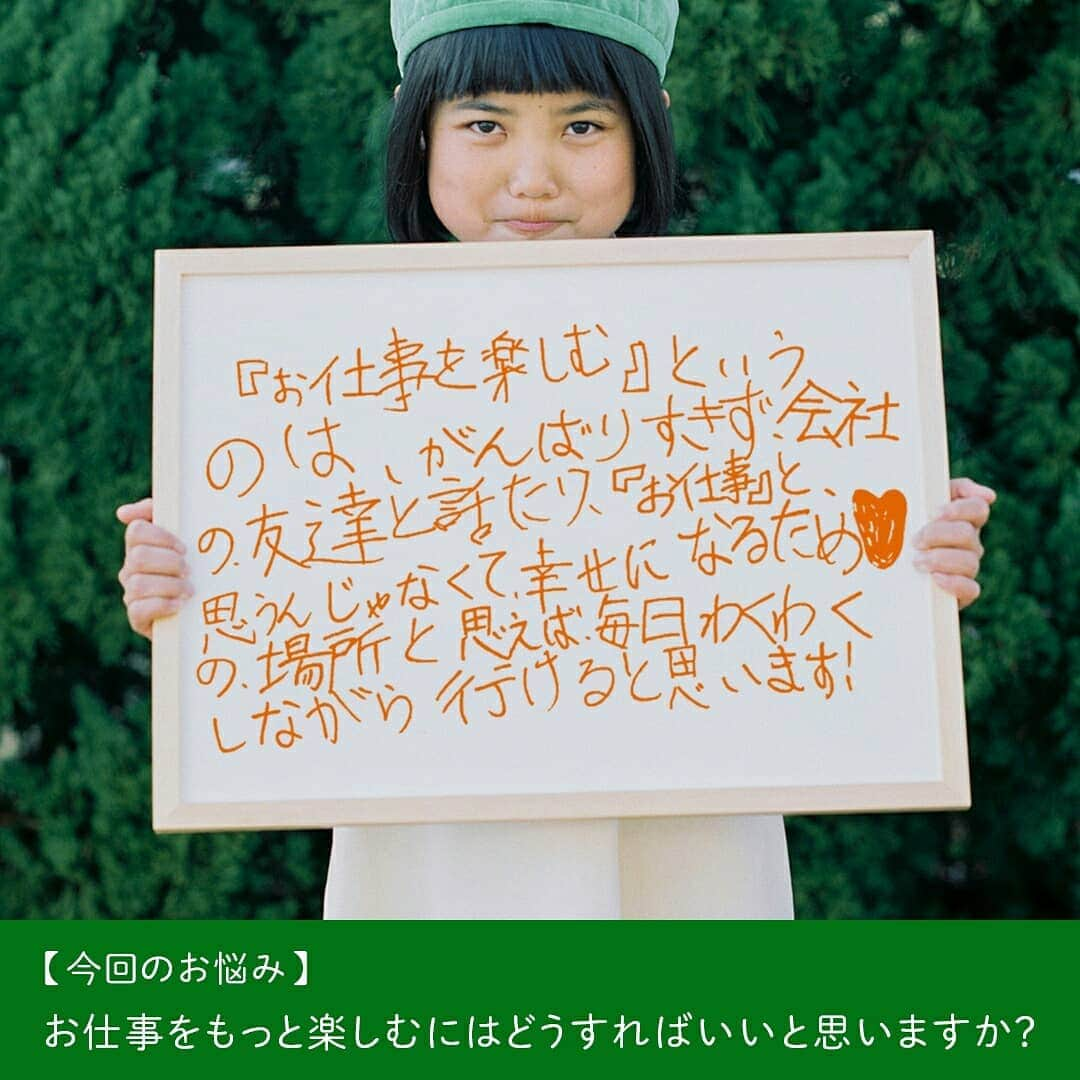 『お仕事を楽しむ』という
のは、がんばりすぎず、会社
の、友達と話たり、『お仕事』と、
思うんじゃなくて、幸せになるため
の、場所と思えば、毎日わくわく
しながら行けると思います!
【今回のお悩み】
お仕事をもっと楽しむにはどうすればいいと思いますか?